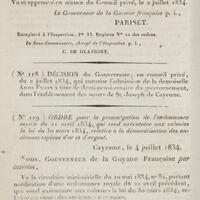 Vu et approuvé en séance du Conseil privé, le 2 juillet 1834.
Le Gouverneur de la Guyane française p. i.,
PARISET.
Enregistré à l'Inspection, Fº 33, Registre Nº 10 des ordres.
Le Sous-Commissaire, chargé de l'Inspection p. i.,
C. DE GLATIGNY.
(Nº 118) DÉCISION du Gouverneur, en conseil privé,
du 2 juillet 1834, qui autorise l'admission de la demoiselle
à titre de demi-pensionnaire du gouvernement,
dans l'établissement des sœurs de St.-Joseph de Cayenne.
(Nº 119) ORDRE pour la promulgation de l'ordonnance
royale du 21 avril 1834, qui rend exécutoire aux colonies
la loi du 30 mars 1834, relative à la démonétisation des an-
ciennes espèces d'or et d'argent.
Cayenne, le 4 juillet 1834.
NOUS, GOUVERNEUR de la Guyane Française par
intérim,
Vu la circulaire ministérielle du 20 mai 1834, nº 81, portant
notification d'une ordonnance royale du 21 avril précédent,
qui rend exécutoire aux colonies la loi du 30 mars, re-